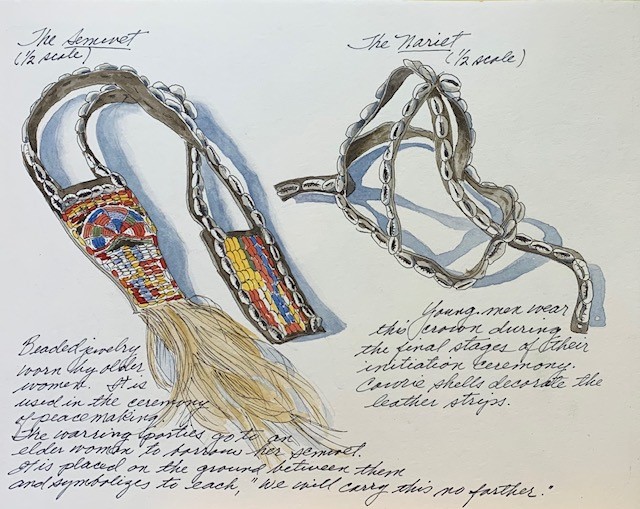 The Semwet
(1/2 scale)
Beaded jewelry
worn by older
women. It is
used in the ceremony
of peacemaking.
The warring parties go to an
elder woman to borrow her semwet.
It is placed on the ground between them
and symbolizes to each, "We will carry this no farther."
The Nariet
(1/2 scale)
Young men wear
this crown during
the final stages of their
initiation ceremony.
Cowrie shells decorate the
leather strips.